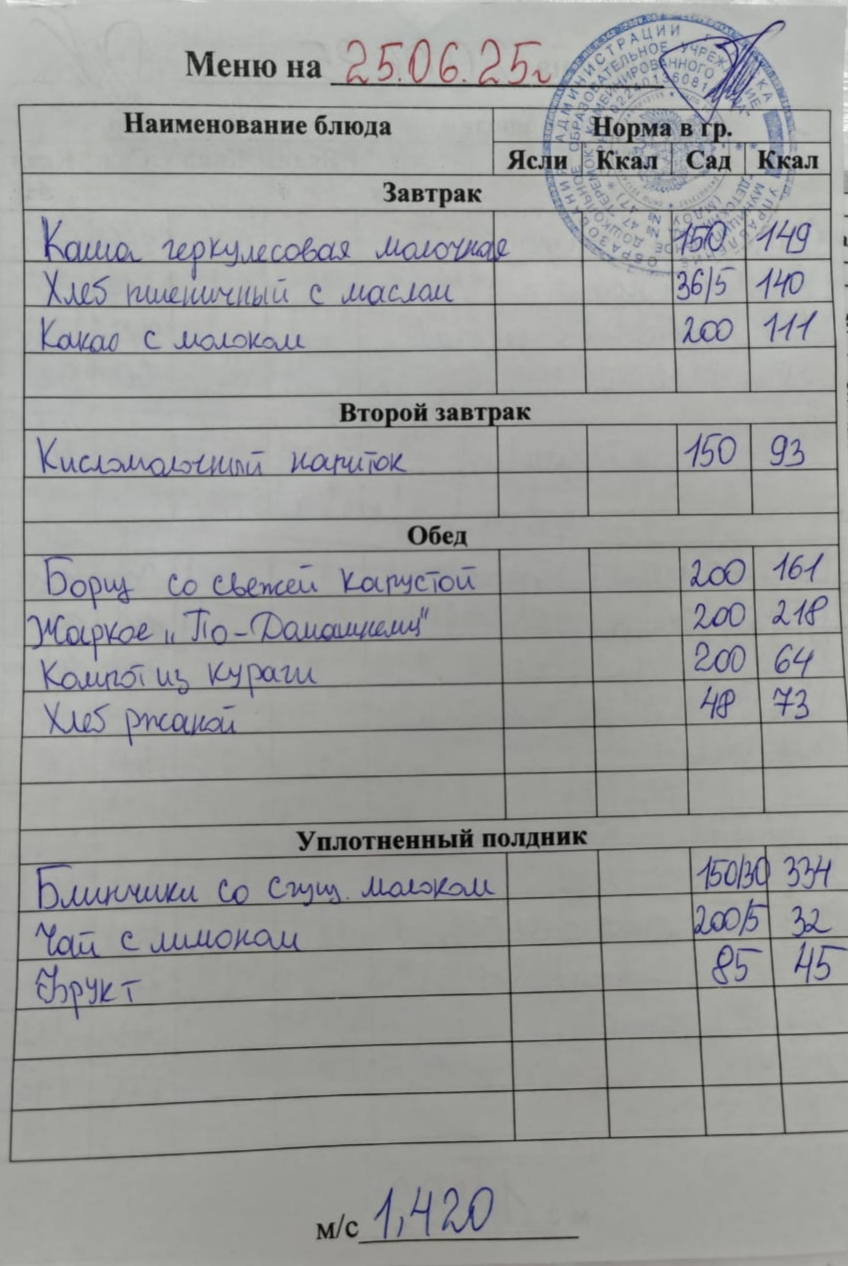 Меню на 25.06.25г
Наименование блюда Норма в гр.
Ясли Ккал Сад Ккал
Завтрак
Каша геркулесовая молочная 150 149
Хлеб пшеничный с маслом 36/5 140
Какао с молоком 200 111
Второй завтрак
Кисломолочный напиток 150 93
Обед
Борщ со свежей капустой 200 161
Жаркое „По-Домашнему" 200 218
Компот из кураги 200 64
Хлеб ржаной 48 73
Уплотненный полдник
Блинчики со сгущ. молоком 150/30 334
Чай с лимоном 200/5 32
Фрукт 85 45
м/с 1,420